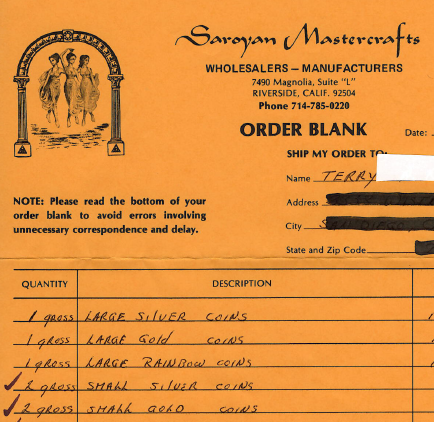 Saroyan Mastercrafts
WHOLESALERS – MANUFACTURERS
7490 Magnolia, Suite "L"
RIVERSIDE, CALIF. 92504
Phone 714-785-0220
ORDER BLANK
Date:
SHIP MY ORDER TO:
Name TERRY
Address
City
State and Zip Code
NOTE: Please read the bottom of your
order blank to avoid errors involving
unnecessary correspondence and delay.
QUANTITY DESCRIPTION
1 gross LARGE SILVER COINS
1 gross LARGE Gold COINS
1 gross LARGE RAINBOW COINS
✓ 2 gross SMALL SILVER COINS
✓ 2 gross SMALL GOLD COINS